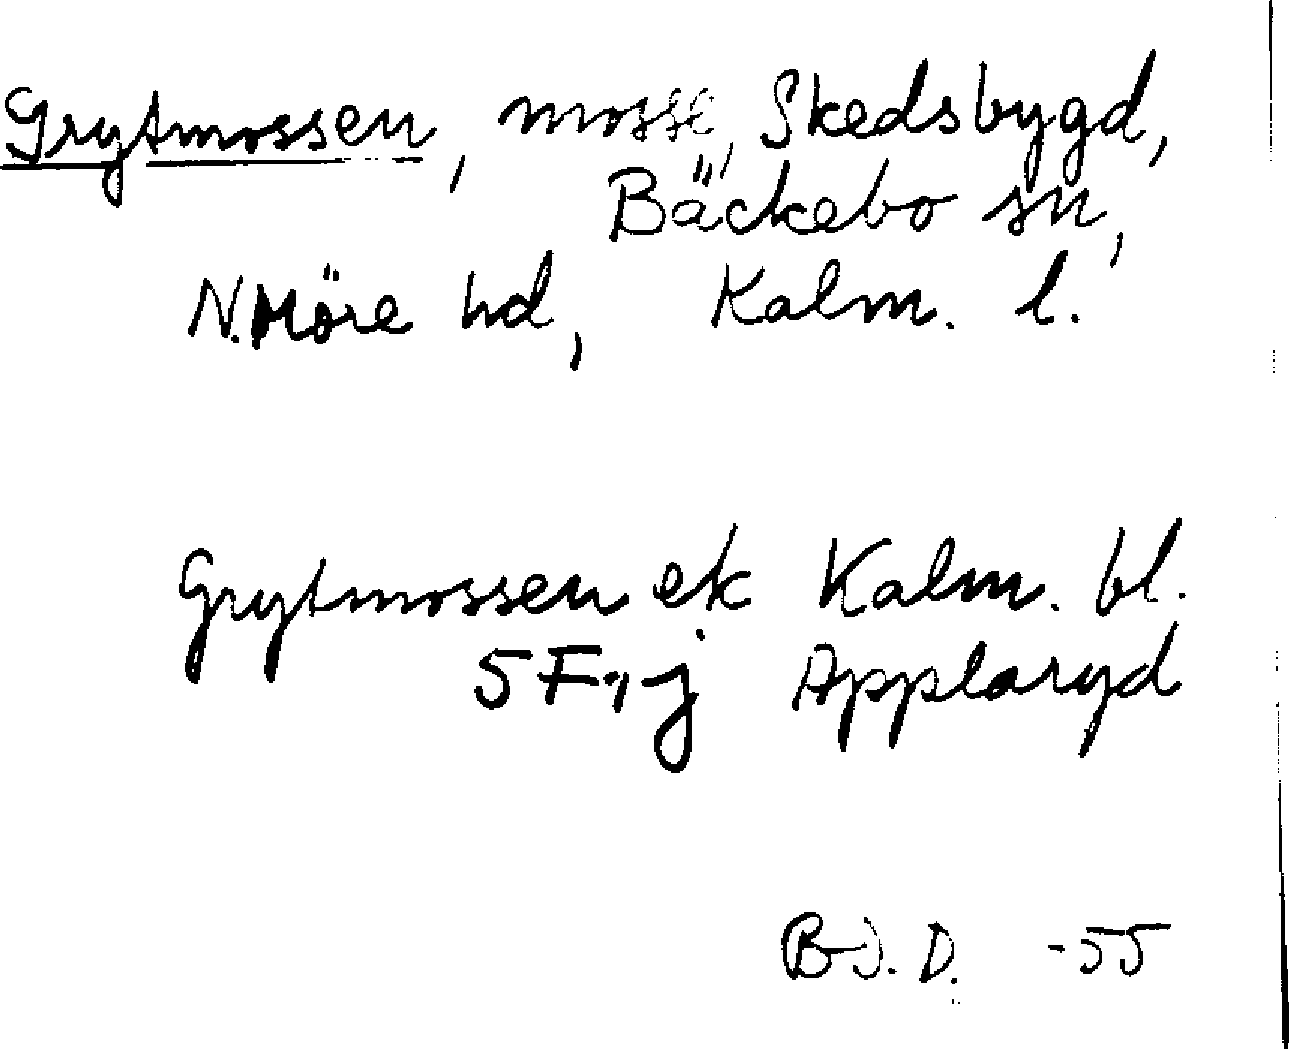 Grytmossen, mosse, Skedsbygd,
Bäckebo sn,
N. Möre hd, Kalm. l.
Grytmossen ek Kalm. bl.
5 F:, j Applaryd
B J. D. -55